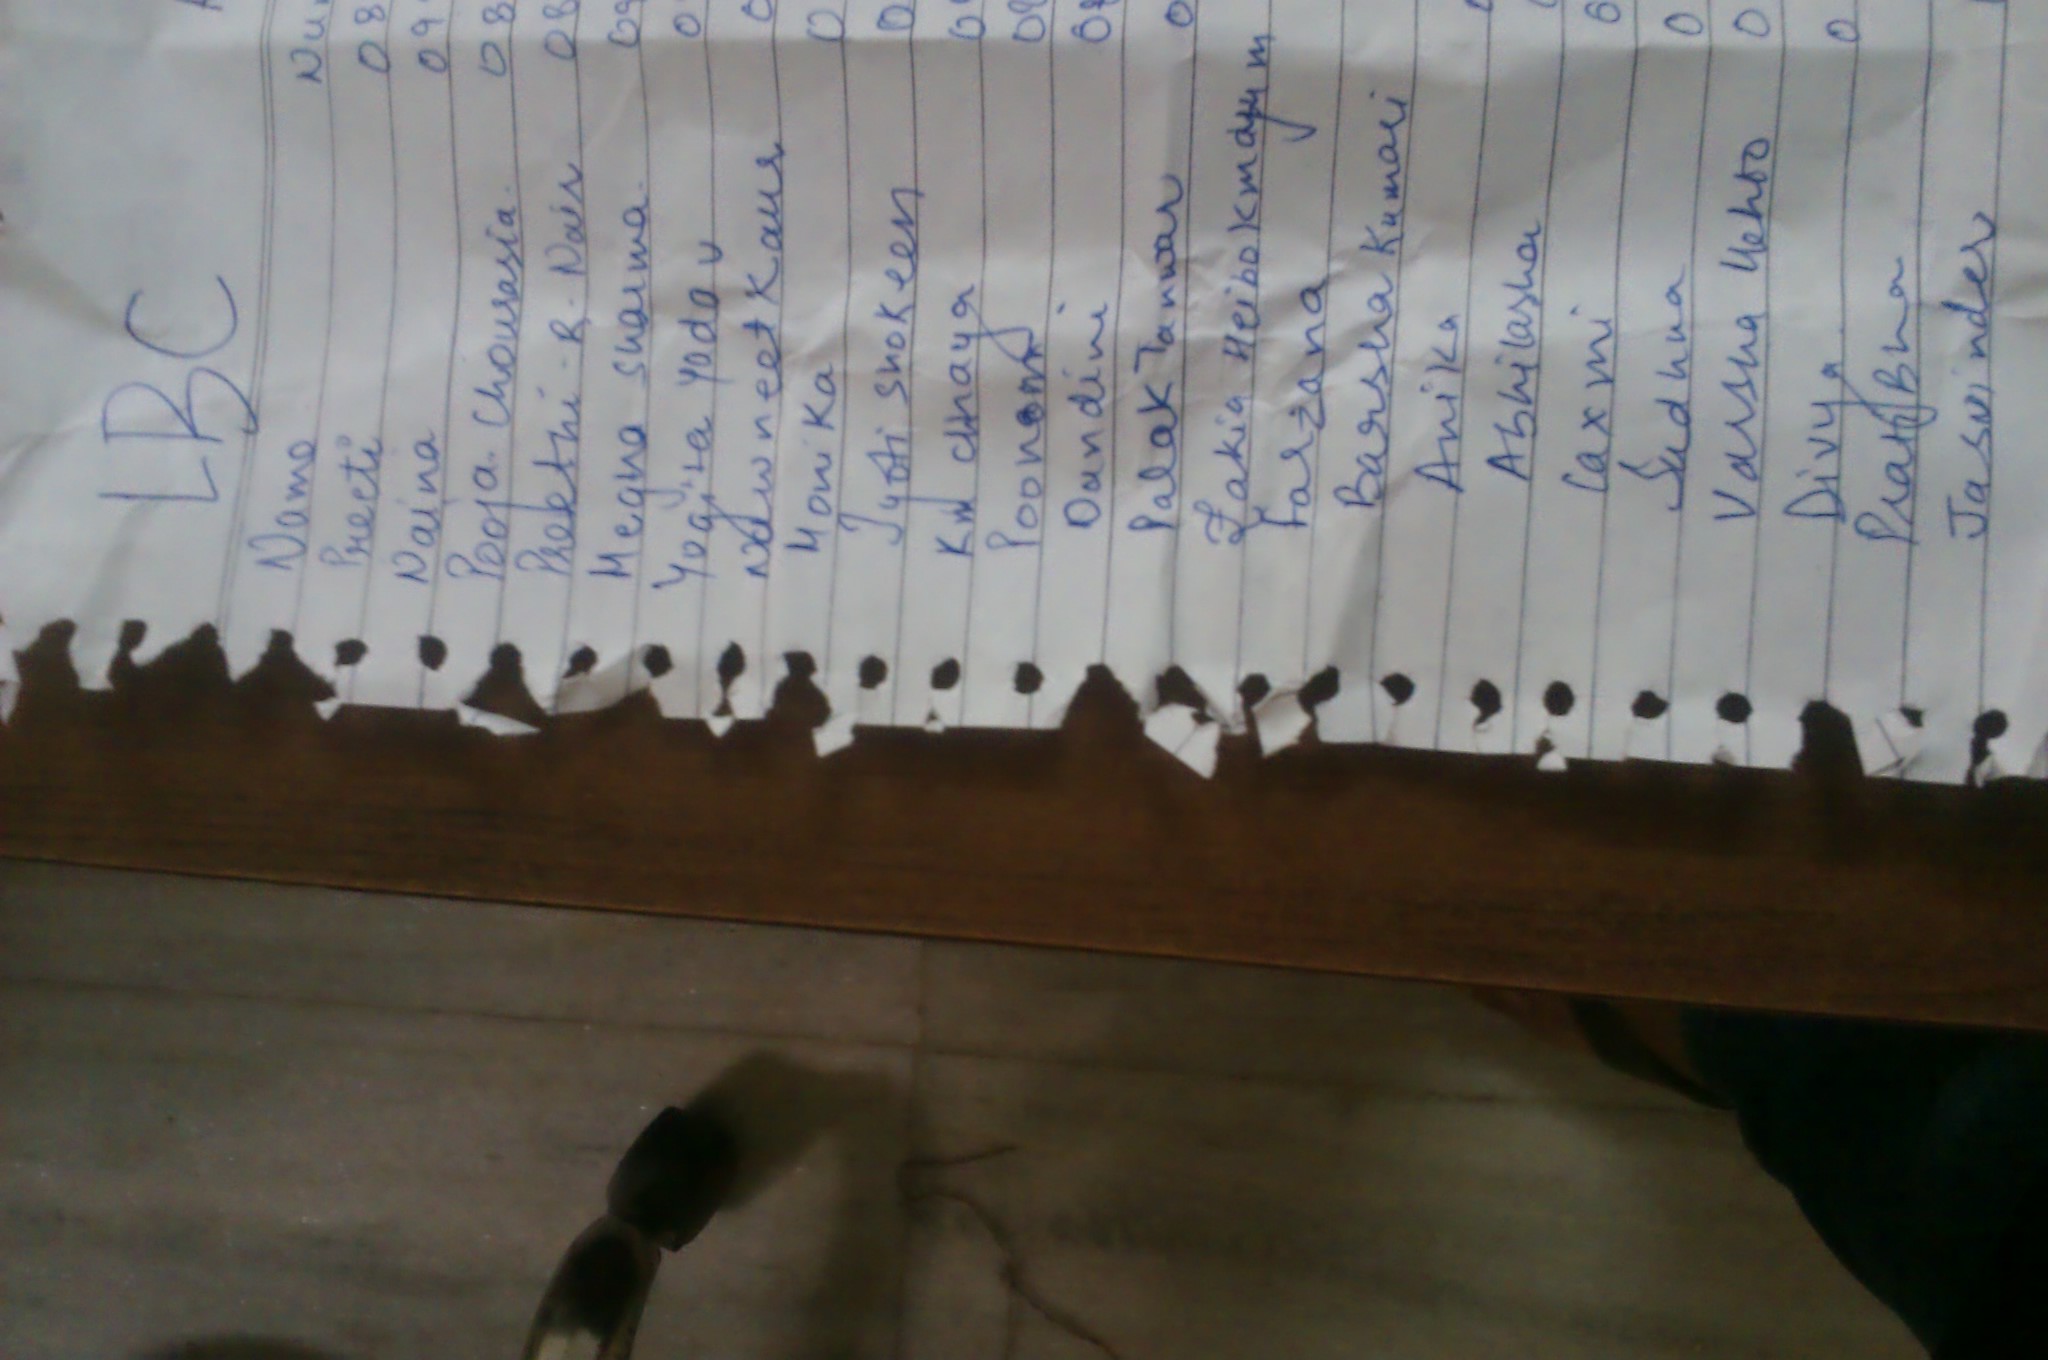 LBC
Name Nu
Preeti 08
Naina 09
Pooja. Chourasia. 08
Preethi. R. Nair 08
Megha sharma. 09
Yogita Yadav 0
Navneet Kaur 0
Monika 0
Jyoti shokeen 0
Km chaya 0
Poonam 08
Nandini 08
Palak Tanwar 0
Zakia Heibokmayum
Farzana
Barsha Kumari
Anika
Abhilasha
Laxmi
Sudha 0
Varsha Mehto 0
Divya 0
Pratibha
Jaswinder